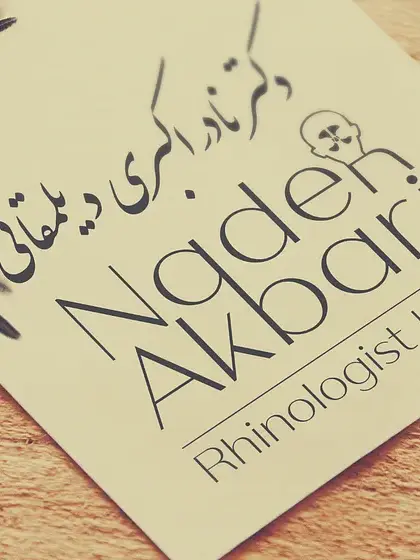 دکتر نادر اکبری دیلمقانی
Nader
Akbar
Rhinologist